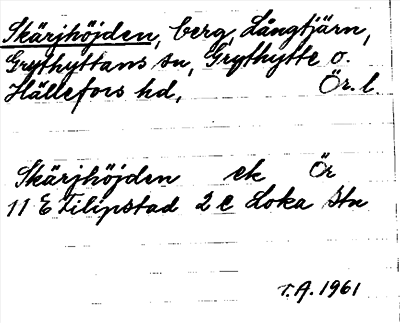 Skärjhöjden, berg, Långtjärn,
Grythyttans sn, Grythytte o.
Hällefors hd, Ör. l.
Skärjhöjden ek Ör
11 E Filipstad 2 c Loka stn
T.A. 1961